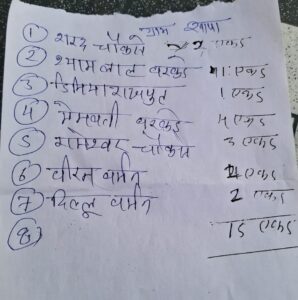 ① शरद चौकसे 2 एकड
② श्यामलाल बरकडे 1 एकड
③ 1 एकड
④ प्रेमवती बरकडे 4 एकड
⑤ रामेश्वर चौकसे 3 एकड
⑥ वीरन वर्मन 2 एकड
⑦ दिल्लू वर्मन 2 एकड
⑧ 15 एकड